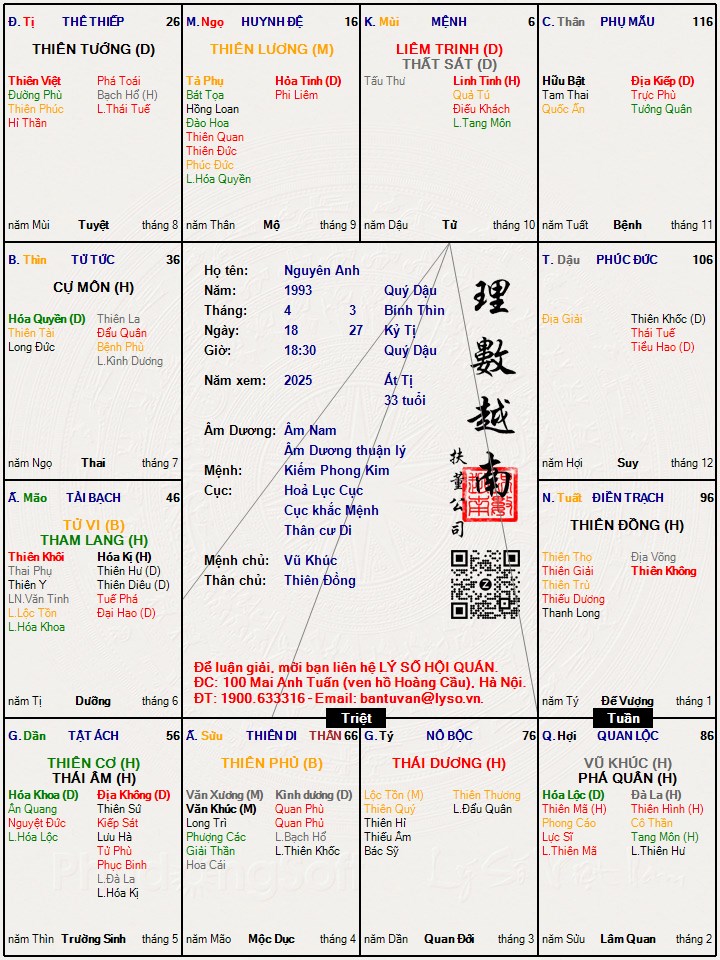 Đ. Tị THÊ THIẾP 26
THIÊN TƯỚNG (D)
Thiên Việt Phá Toái
Đường Phù Bạch Hổ (H)
Thiên Phúc L.Thái Tuế
Hỉ Thần
năm Mùi Tuyệt tháng 8
M. Ngọ HUYNH ĐỆ 16
THIÊN LƯƠNG (M)
Tả Phụ Hỏa Tinh (D)
Bát Tọa Phi Liêm
Hồng Loan
Đào Hoa
Thiên Quan
Thiên Đức
Phúc Đức
L.Hóa Quyền
năm Thân Mộ tháng 9
K. Mùi MỆNH 6
LIÊM TRINH (D)
THẤT SÁT (D)
Tấu Thư Linh Tinh (H)
Quả Tú
Điếu Khách
L.Tang Môn
năm Dậu Tử tháng 10
C. Thân PHỤ MẪU 116
Hữu Bật Địa Kiếp (D)
Tam Thai Trực Phù
Quốc Ấn Tướng Quân
năm Tuất Bệnh tháng 11
B. Thìn TỬ TỨC 36
CỰ MÔN (H)
Hóa Quyền (D) Thiên La
Thiên Tài Đẩu Quân
Long Đức Bệnh Phù
L.Kình Dương
năm Ngọ Thai tháng 7
Họ tên: Nguyên Anh
Năm: 1993 Quý Dậu
Tháng: 4 3 Bính Thìn
Ngày: 18 27 Kỷ Tị
Giờ: 18:30 Quý Dậu
Năm xem: 2025 Ất Tị
33 tuổi
Âm Dương: Âm Nam
Âm Dương thuận lý
Mệnh: Kiếm Phong Kim
Cục: Hoả Lục Cục
Cục khắc Mệnh
Thân cư Di
Mệnh chủ: Vũ Khúc
Thân chủ: Thiên Đồng
理數越南
扶董公司
Để luận giải, mời bạn liên hệ LÝ SỐ HỘI QUÁN.
ĐC: 100 Mai Anh Tuấn (ven hồ Hoàng Cầu), Hà Nội.
ĐT: 1900.633316 - Email: bantuvan@lyso.vn.
T. Dậu PHÚC ĐỨC 106
Địa Giải Thiên Khốc (D)
Thái Tuế
Tiểu Hao (D)
năm Hợi Suy tháng 12
Ấ. Mão TÀI BẠCH 46
TỬ VI (B)
THAM LANG (H)
Thiên Khôi Hóa Kị (H)
Thai Phụ Thiên Hư (D)
Thiên Y Thiên Diêu (D)
LN.Văn Tinh Tuế Phá
L.Lộc Tồn Đại Hao (D)
L.Hóa Khoa
năm Tị Dưỡng tháng 6
N. Tuất ĐIỀN TRẠCH 96
THIÊN ĐỒNG (H)
Thiên Thọ Địa Võng
Thiên Giải Thiên Không
Thiên Trù
Thiếu Dương
Thanh Long
năm Tý Đế Vượng tháng 1
Triệt
Tuần
G. Dần TẬT ÁCH 56
THIÊN CƠ (H)
THÁI ÂM (H)
Hóa Khoa (D) Địa Không (D)
Ân Quang Thiên Sứ
Nguyệt Đức Kiếp Sát
L.Hóa Lộc Lưu Hà
Tử Phù
Phục Binh
L.Đà La
L.Hóa Kị
năm Thìn Trường Sinh tháng 5
Ấ. Sửu THIÊN DI THÂN 66
THIÊN PHỦ (B)
Văn Xương (M) Kình dương (D)
Văn Khúc (M) Quan Phù
Long Trì Quan Phủ
Phượng Các L.Bạch Hổ
Giải Thần L.Thiên Khốc
Hoa Cái
năm Mão Mộc Dục tháng 4
G. Tý NÔ BỘC 76
THÁI DƯƠNG (H)
Lộc Tồn (M) Thiên Thương
Thiên Quý L.Đẩu Quân
Thiên Hỉ
Thiếu Âm
Bác Sỹ
năm Dần Quan Đới tháng 3
Q. Hợi QUAN LỘC 86
VŨ KHÚC (H)
PHÁ QUÂN (H)
Hóa Lộc (D) Đà La (H)
Thiên Mã (H) Thiên Hình (H)
Phong Cáo Cô Thần
Lực Sĩ Tang Môn (H)
L.Thiên Mã L.Thiên Hư
năm Sửu Lâm Quan tháng 2